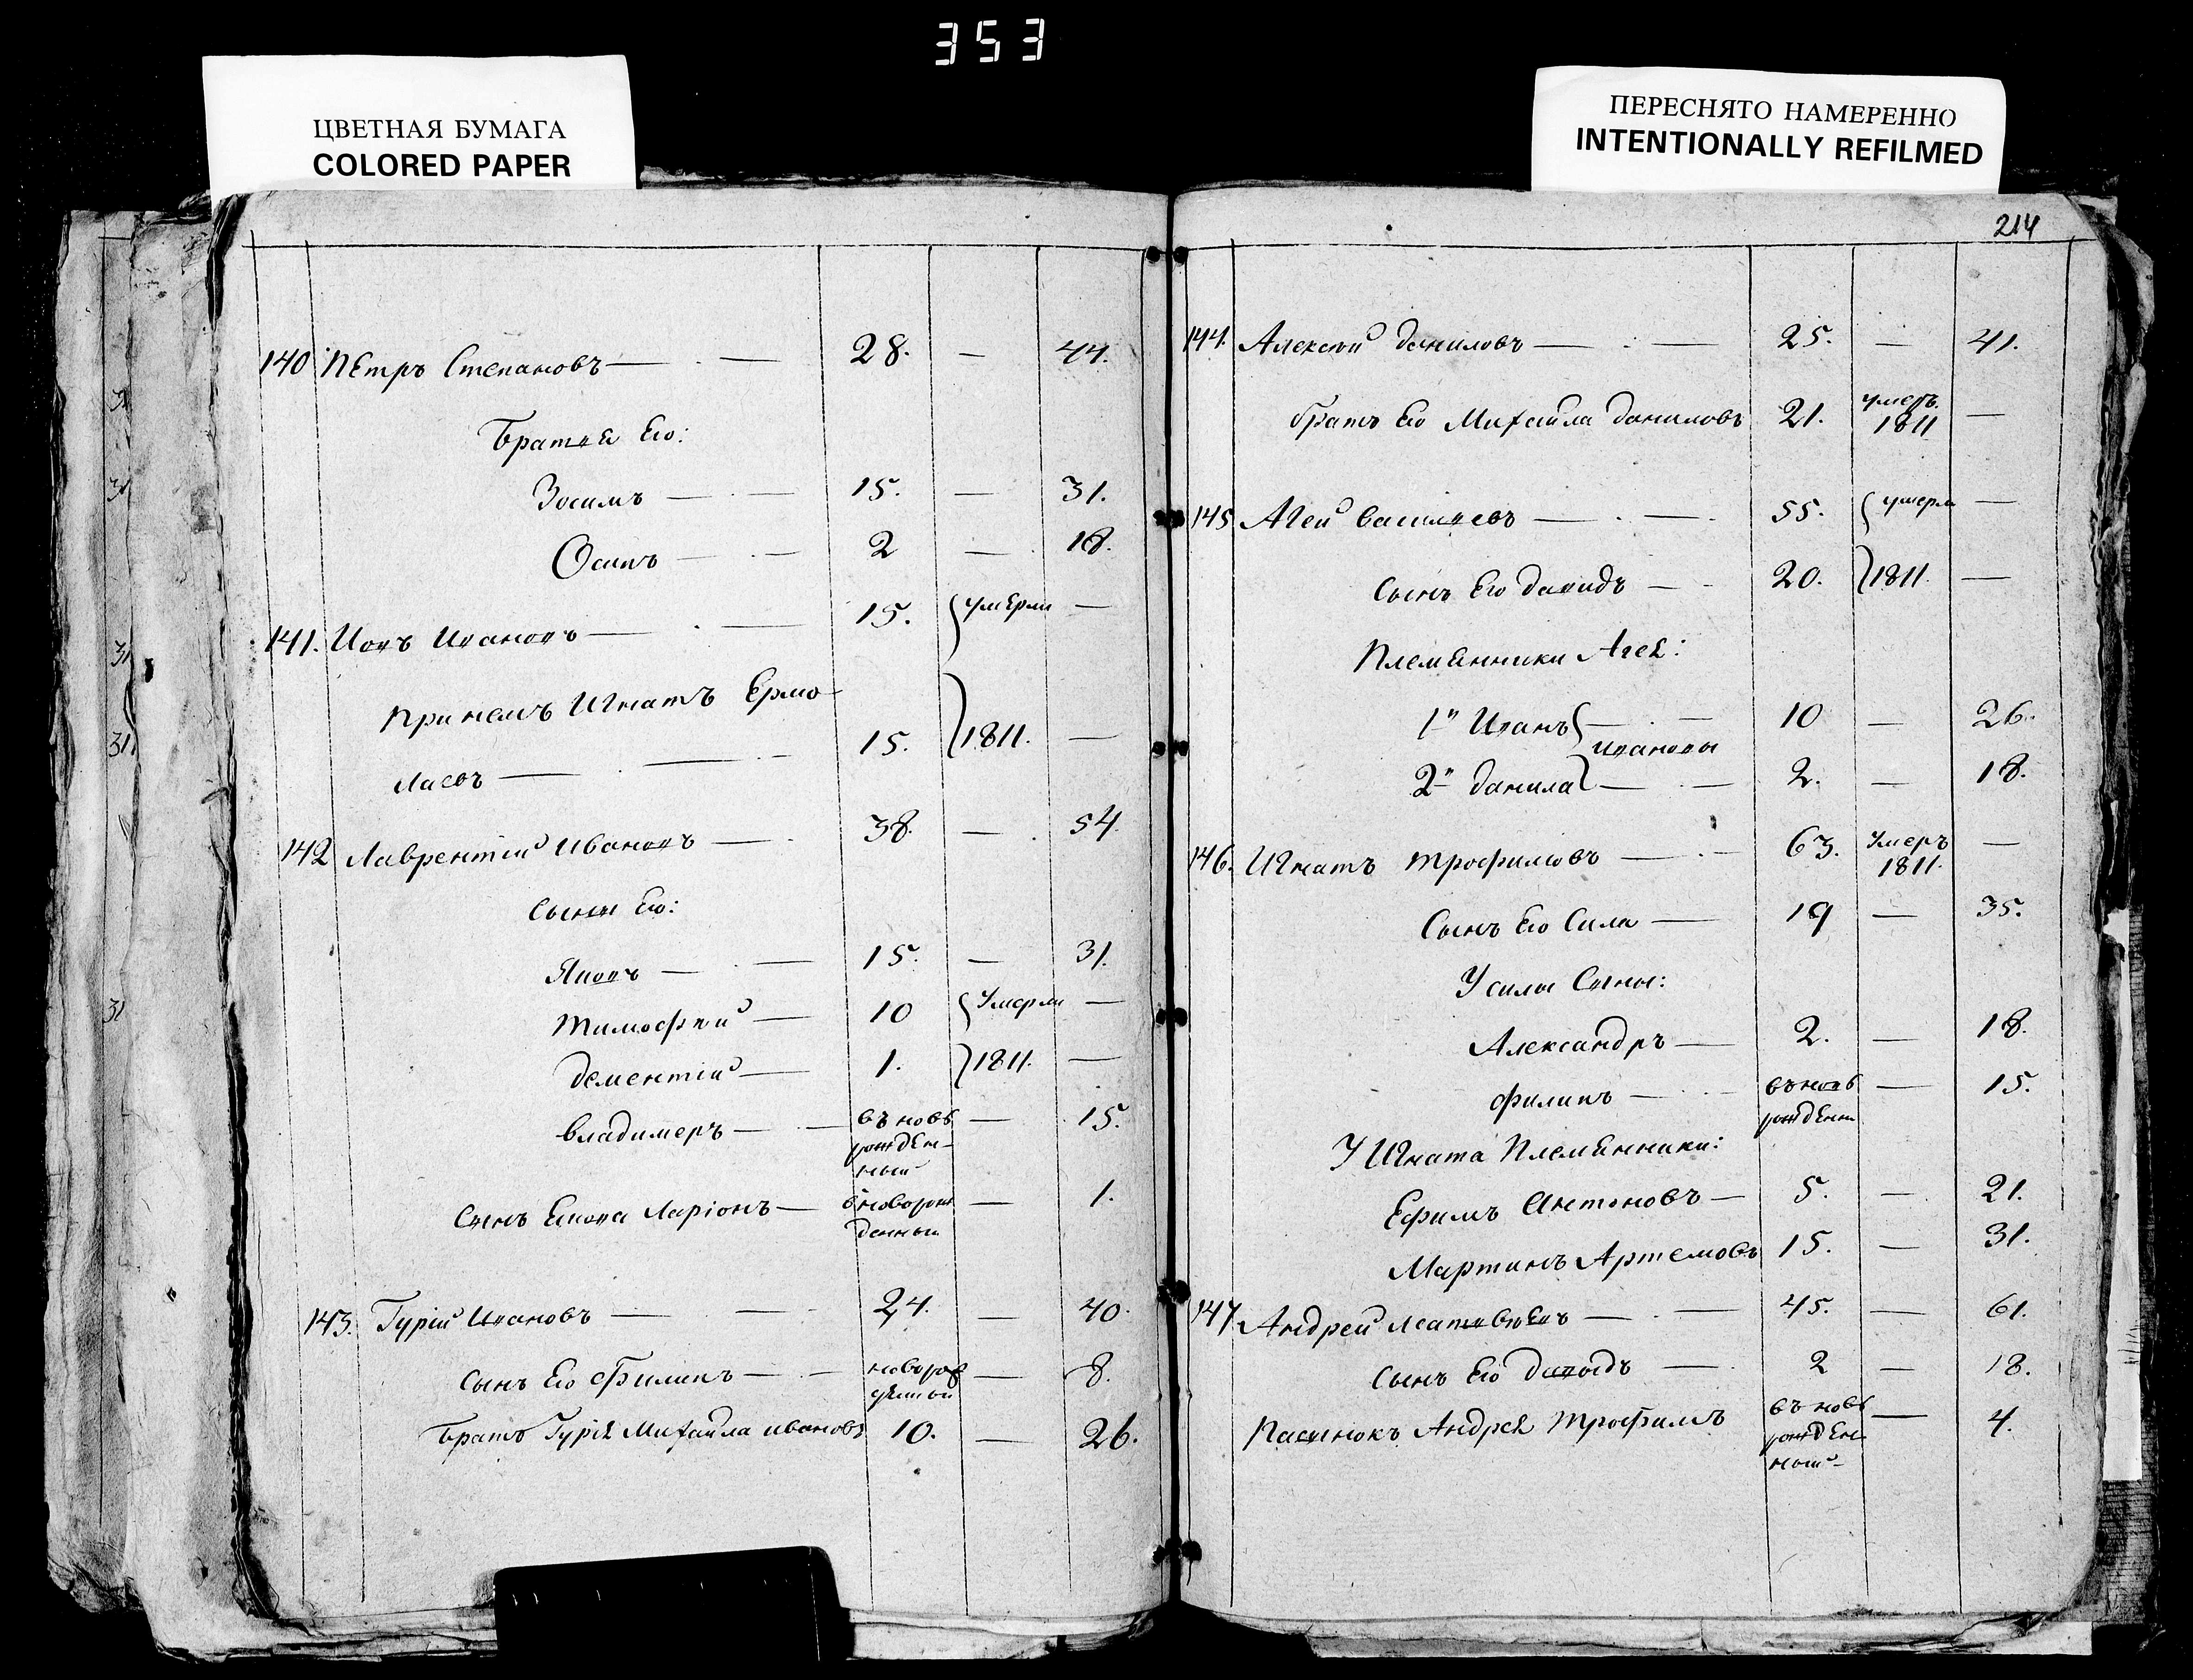 353
ЦВЕТНАЯ БУМАГА
COLORED PAPER
ПЕРЕСНЯТО НАМЕРЕННО
INTENTIONALLY REFILMED
140 Петръ Степановъ — 28. — 44.
Братья Его:
Зосимъ — 15. — 31.
Осипъ — 2 — 18.
141. Иовъ Ивановъ — 15. умерли —
Приемъ Игнатъ Ермо-
лаевъ — 15. 1811. —
142 Лаврентий Ивановъ — 38. — 54.
Сыны Его:
Яковъ — 15. — 31.
Тимофей — 10 умерли —
Дементий — 1. 1811. —
Владимеръ — въ новь — 15.
рожден-
ный
Сынъ Якова Ларіонъ — вноворож — 1.
денный
143. Гурій Ивановъ — 24. — 40.
Сынъ Его Филипъ — новорож — 8.
денный
Братъ Гурія Михайла Ивановъ 10. — 26.
214
144. Алексей Даниловъ — 25. — 41.
Братъ Его Михайла Даниловъ 21. умеръ. —
1811
145 Агей Васильевъ — 55. умерли —
Сынъ Его Давидъ — 20. 1811. —
Племянники Агея:
1й Иванъ — 10 — 26.
Ивановы
2й Данила — 2. — 18.
146. Игнатъ Трофимовъ — 63. Умеръ —
1811.
Сынъ Его Сила — 19 — 35.
У Силы Сыны:
Александръ — 2. — 18.
Филипъ — въ новь — 15.
рожденны
У Игната Племянники:
Ефимъ Антоновъ — 5. — 21.
Мартинъ Артемовъ 15. — 31.
147 Андрей Матвеевъ — 45. — 61.
Сынъ Его Давыдъ — 2 — 18.
Пасынокъ Андрея Трофимъ въ новь — 4.
рожден
ный
31
31
31
31
31